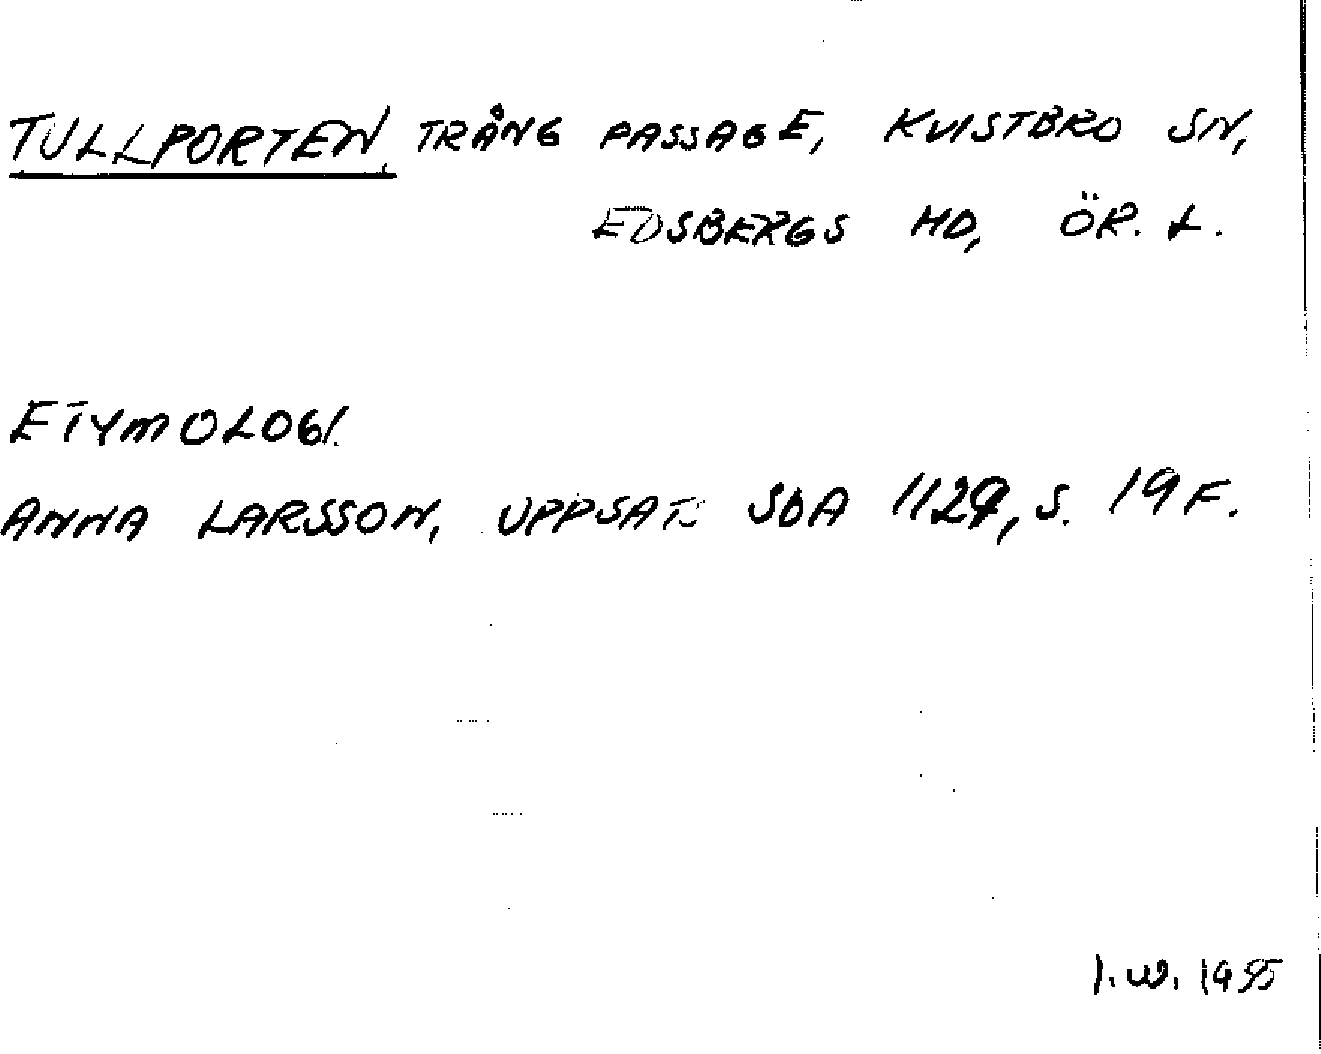 TULLPORTEN, TRÅNG PASSAGE, KVISTBRO SN,
EDSBERGS HD, ÖR. L.
ETYMOLOGI.
ANNA LARSSON, UPPSATS SOA 1129, S. 19 F.
I.W. 1955